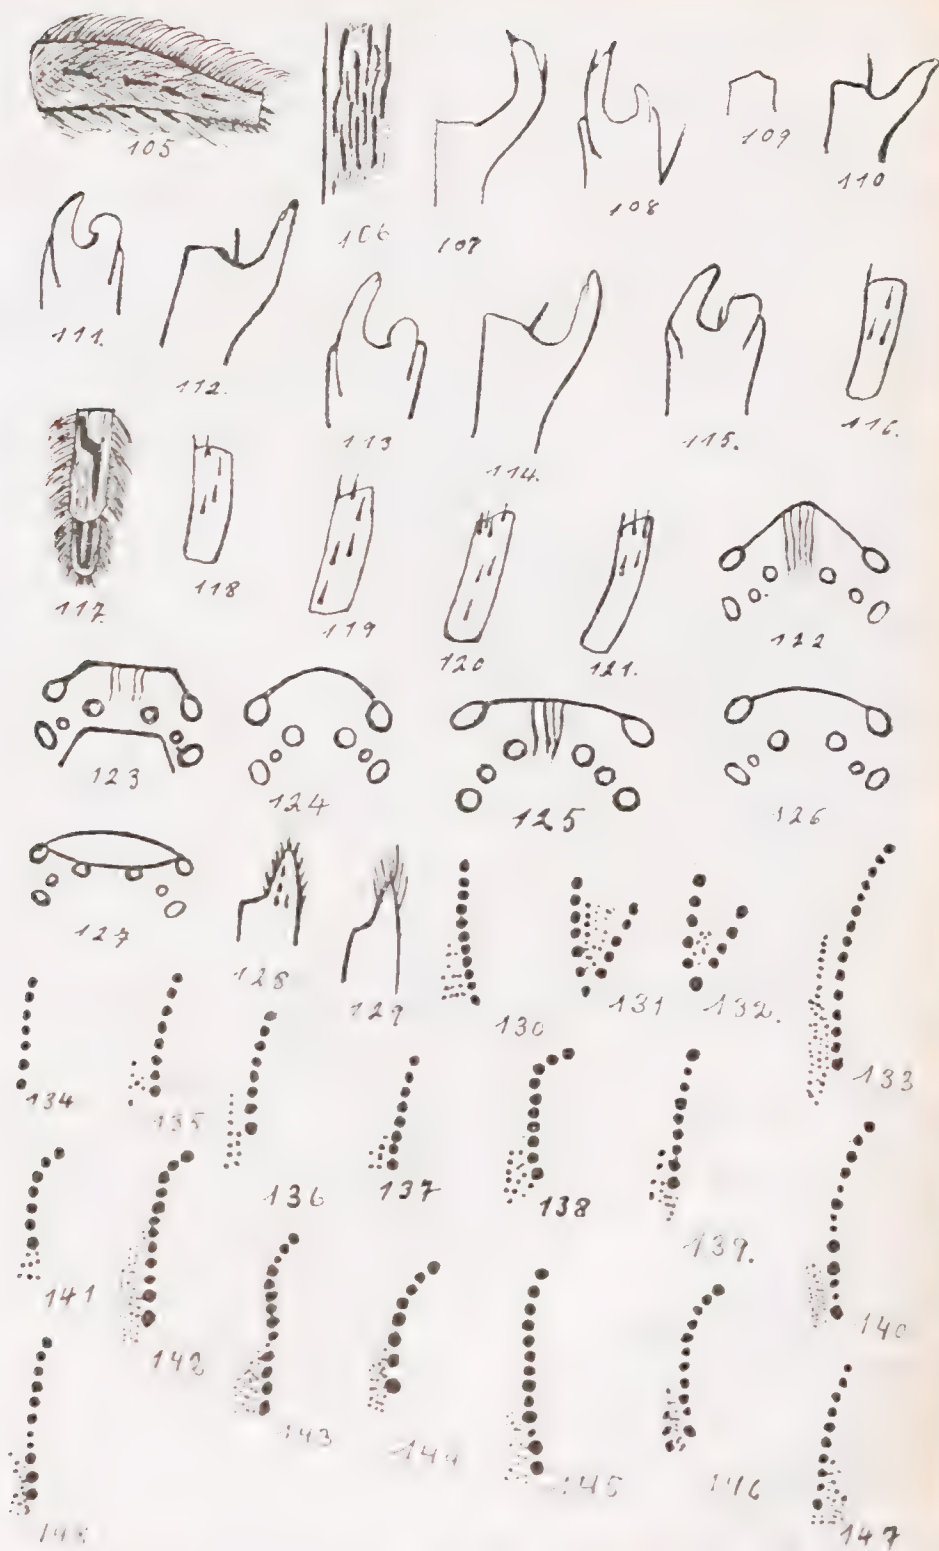 105
106
107
108
109
110
111.
112.
113
114.
115.
116.
117.
118
119
120
121.
122
123
124
125
126
127
128
129
130
131
132.
133
134
135
136
137
138
139.
140
141
142
143
144
145
146
147